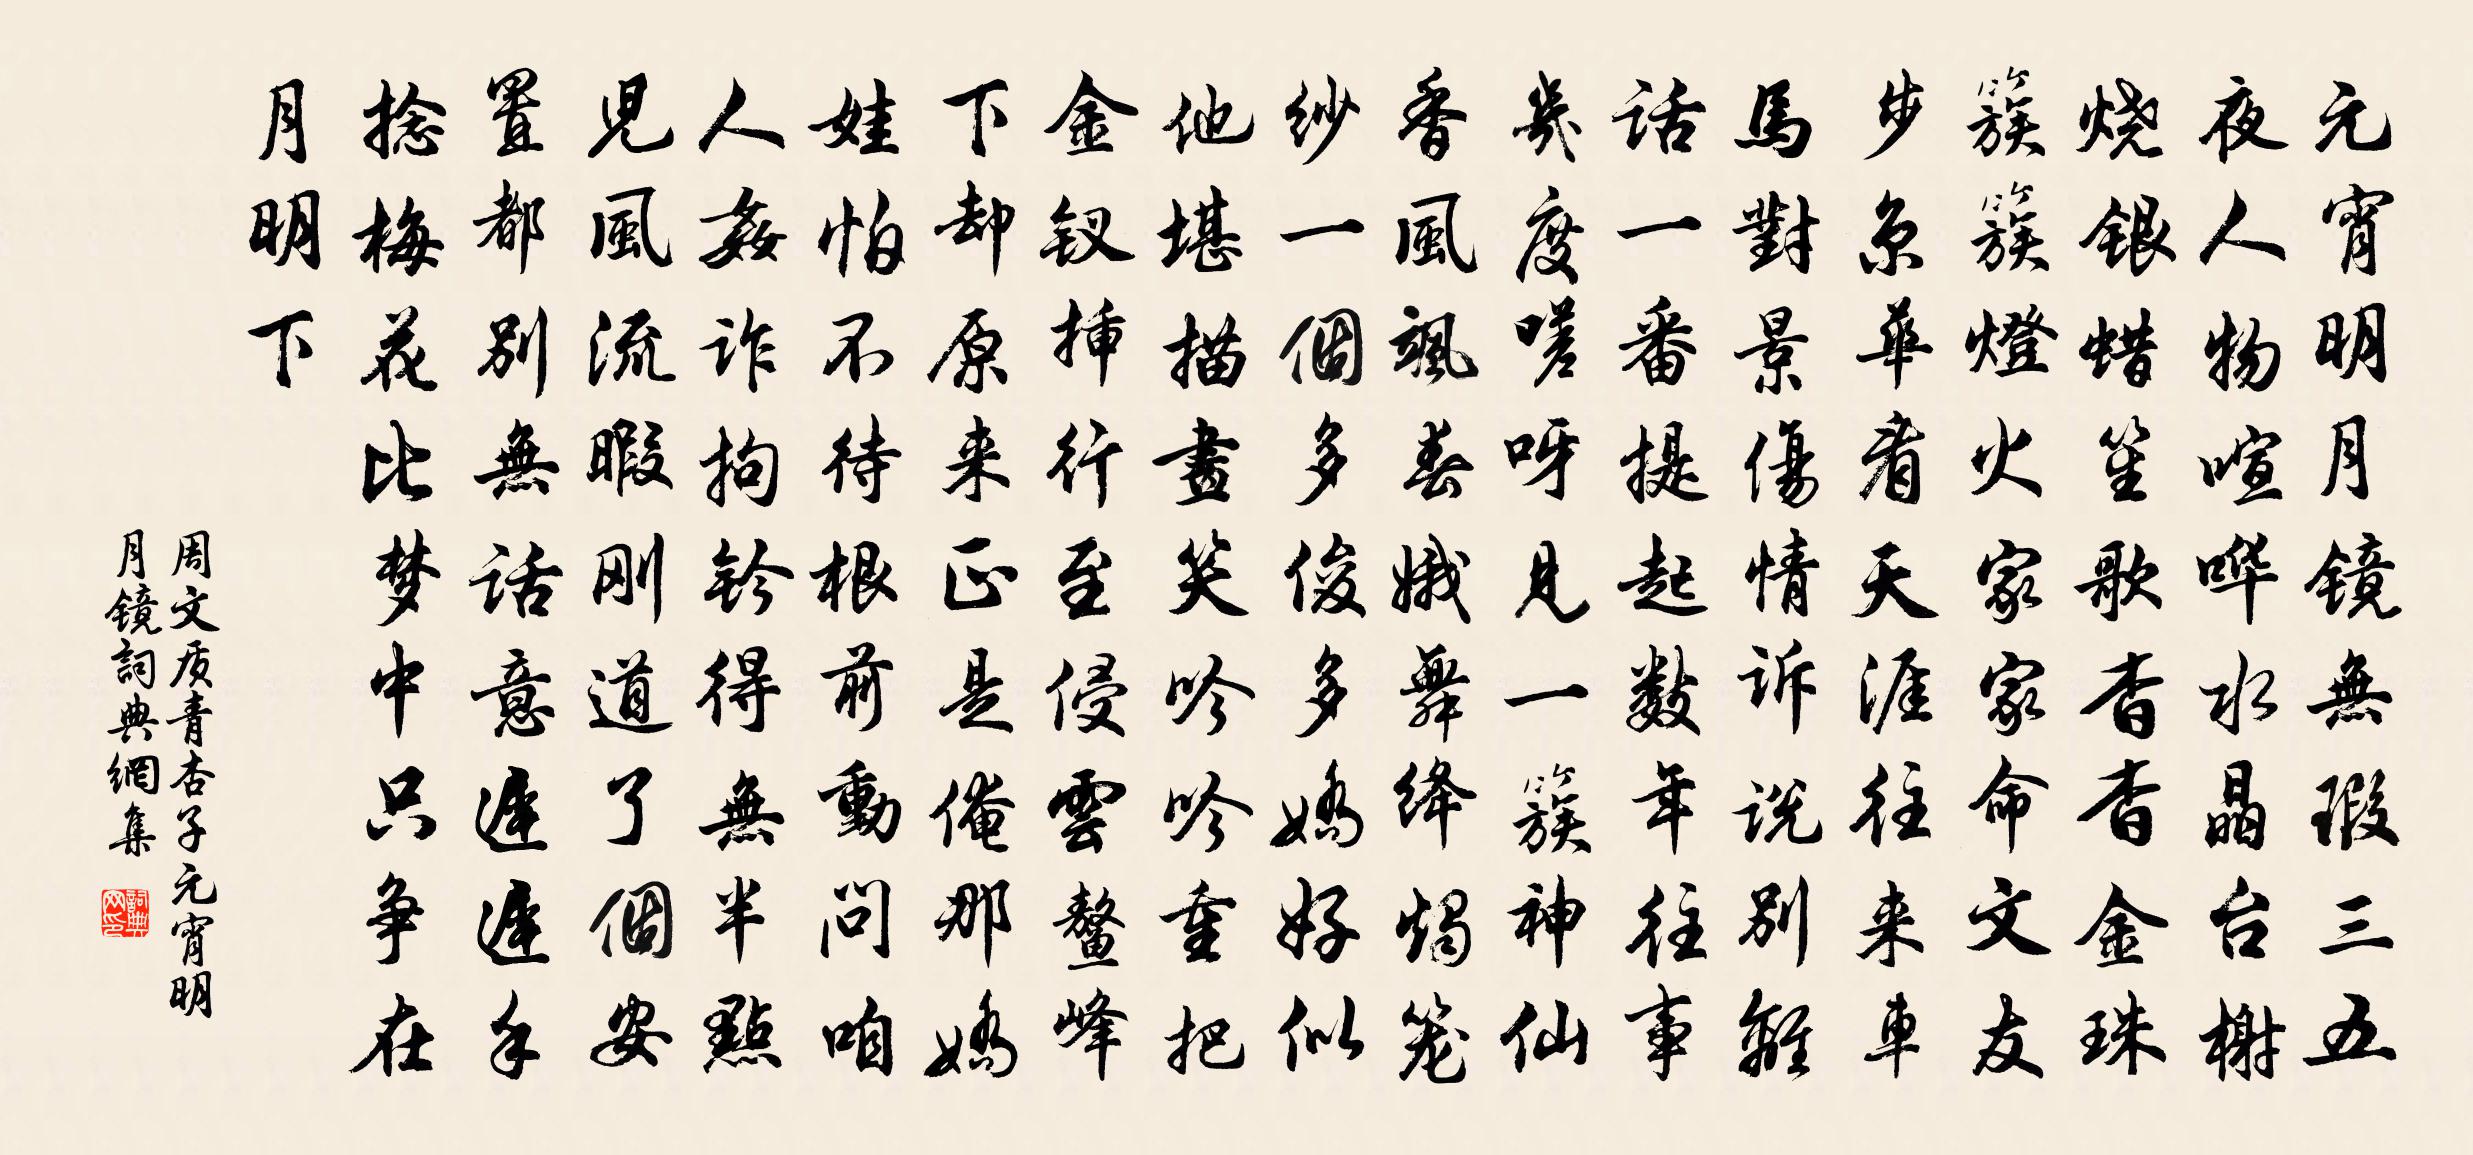 元宵明月镜無瑕三五
夜人物喧哗水晶台榭
烧银蜡笙歌杳杳金珠
簇簇燈火家家命文友
步京華看天涯往来車
馬對景傷情诉说别離
话一番提起数年往事
幾度嗟呀見一簇神仙
香風飒春娥舞绛燭笼
纱一個多俊多嬌好似
他堪描畫笑吟吟重把
金钗插行至侵雲鳌峰
下却原来正是俺那嬌
娃怕不待根前動问咱
人姦诈拘钤得無半點
児風流暇刚道了個安
置都别無话意遲遲手
捻梅花比梦中只争在
月明下
周文质青杏子元宵明
月镜詞典網集
詞典
网印